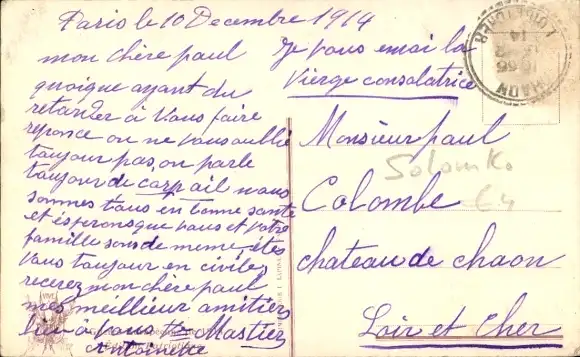 Paris le 10 Decembre 1914
mon chère paul
quoique ayant du
retarder à vous faire
reponce on ne vous oublie
toujour pas, on parle
toujour de carp ail nous
sommes tous en bonne sante
et ésperons que vous et votre
famille sons de meme, êtes
vous toujour en civiles
recevez mon chère paul
mes meilleur amitiers
bien à vous
Antoinette
Je vous envoi la
Vierge consolatrice
Monsieur paul
Colombe
chateau de chaon
Loir et Cher
Solomko
CHAON
LOIR-ET-CHER